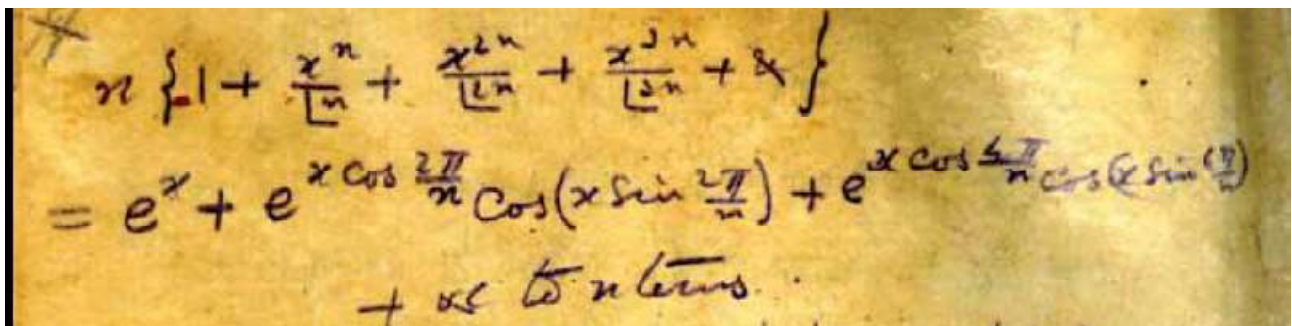 n {1 + xⁿ/|n + x²ⁿ/|2n + x³ⁿ/|3n + &}
= eˣ + e^(x cos 2π/n) Cos(x Sin 2π/n) + e^(x cos 4π/n) cos(x Sin 4π/n)
+ &c to n terms.